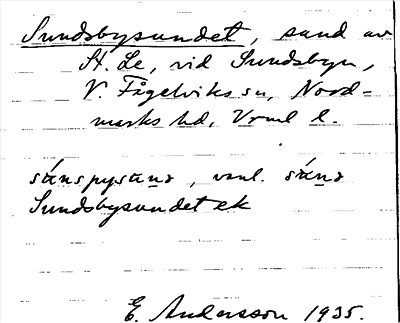 Sundsbysundet, sund av
St. Le, vid Sundsbyn,
V. Fågelviks sn, Nord-
marks hd, Vrml l.
sɯ́nspysɯnə, vanl. sɯ́nə
Sundsbysundet ek
E. Andersson 1935.